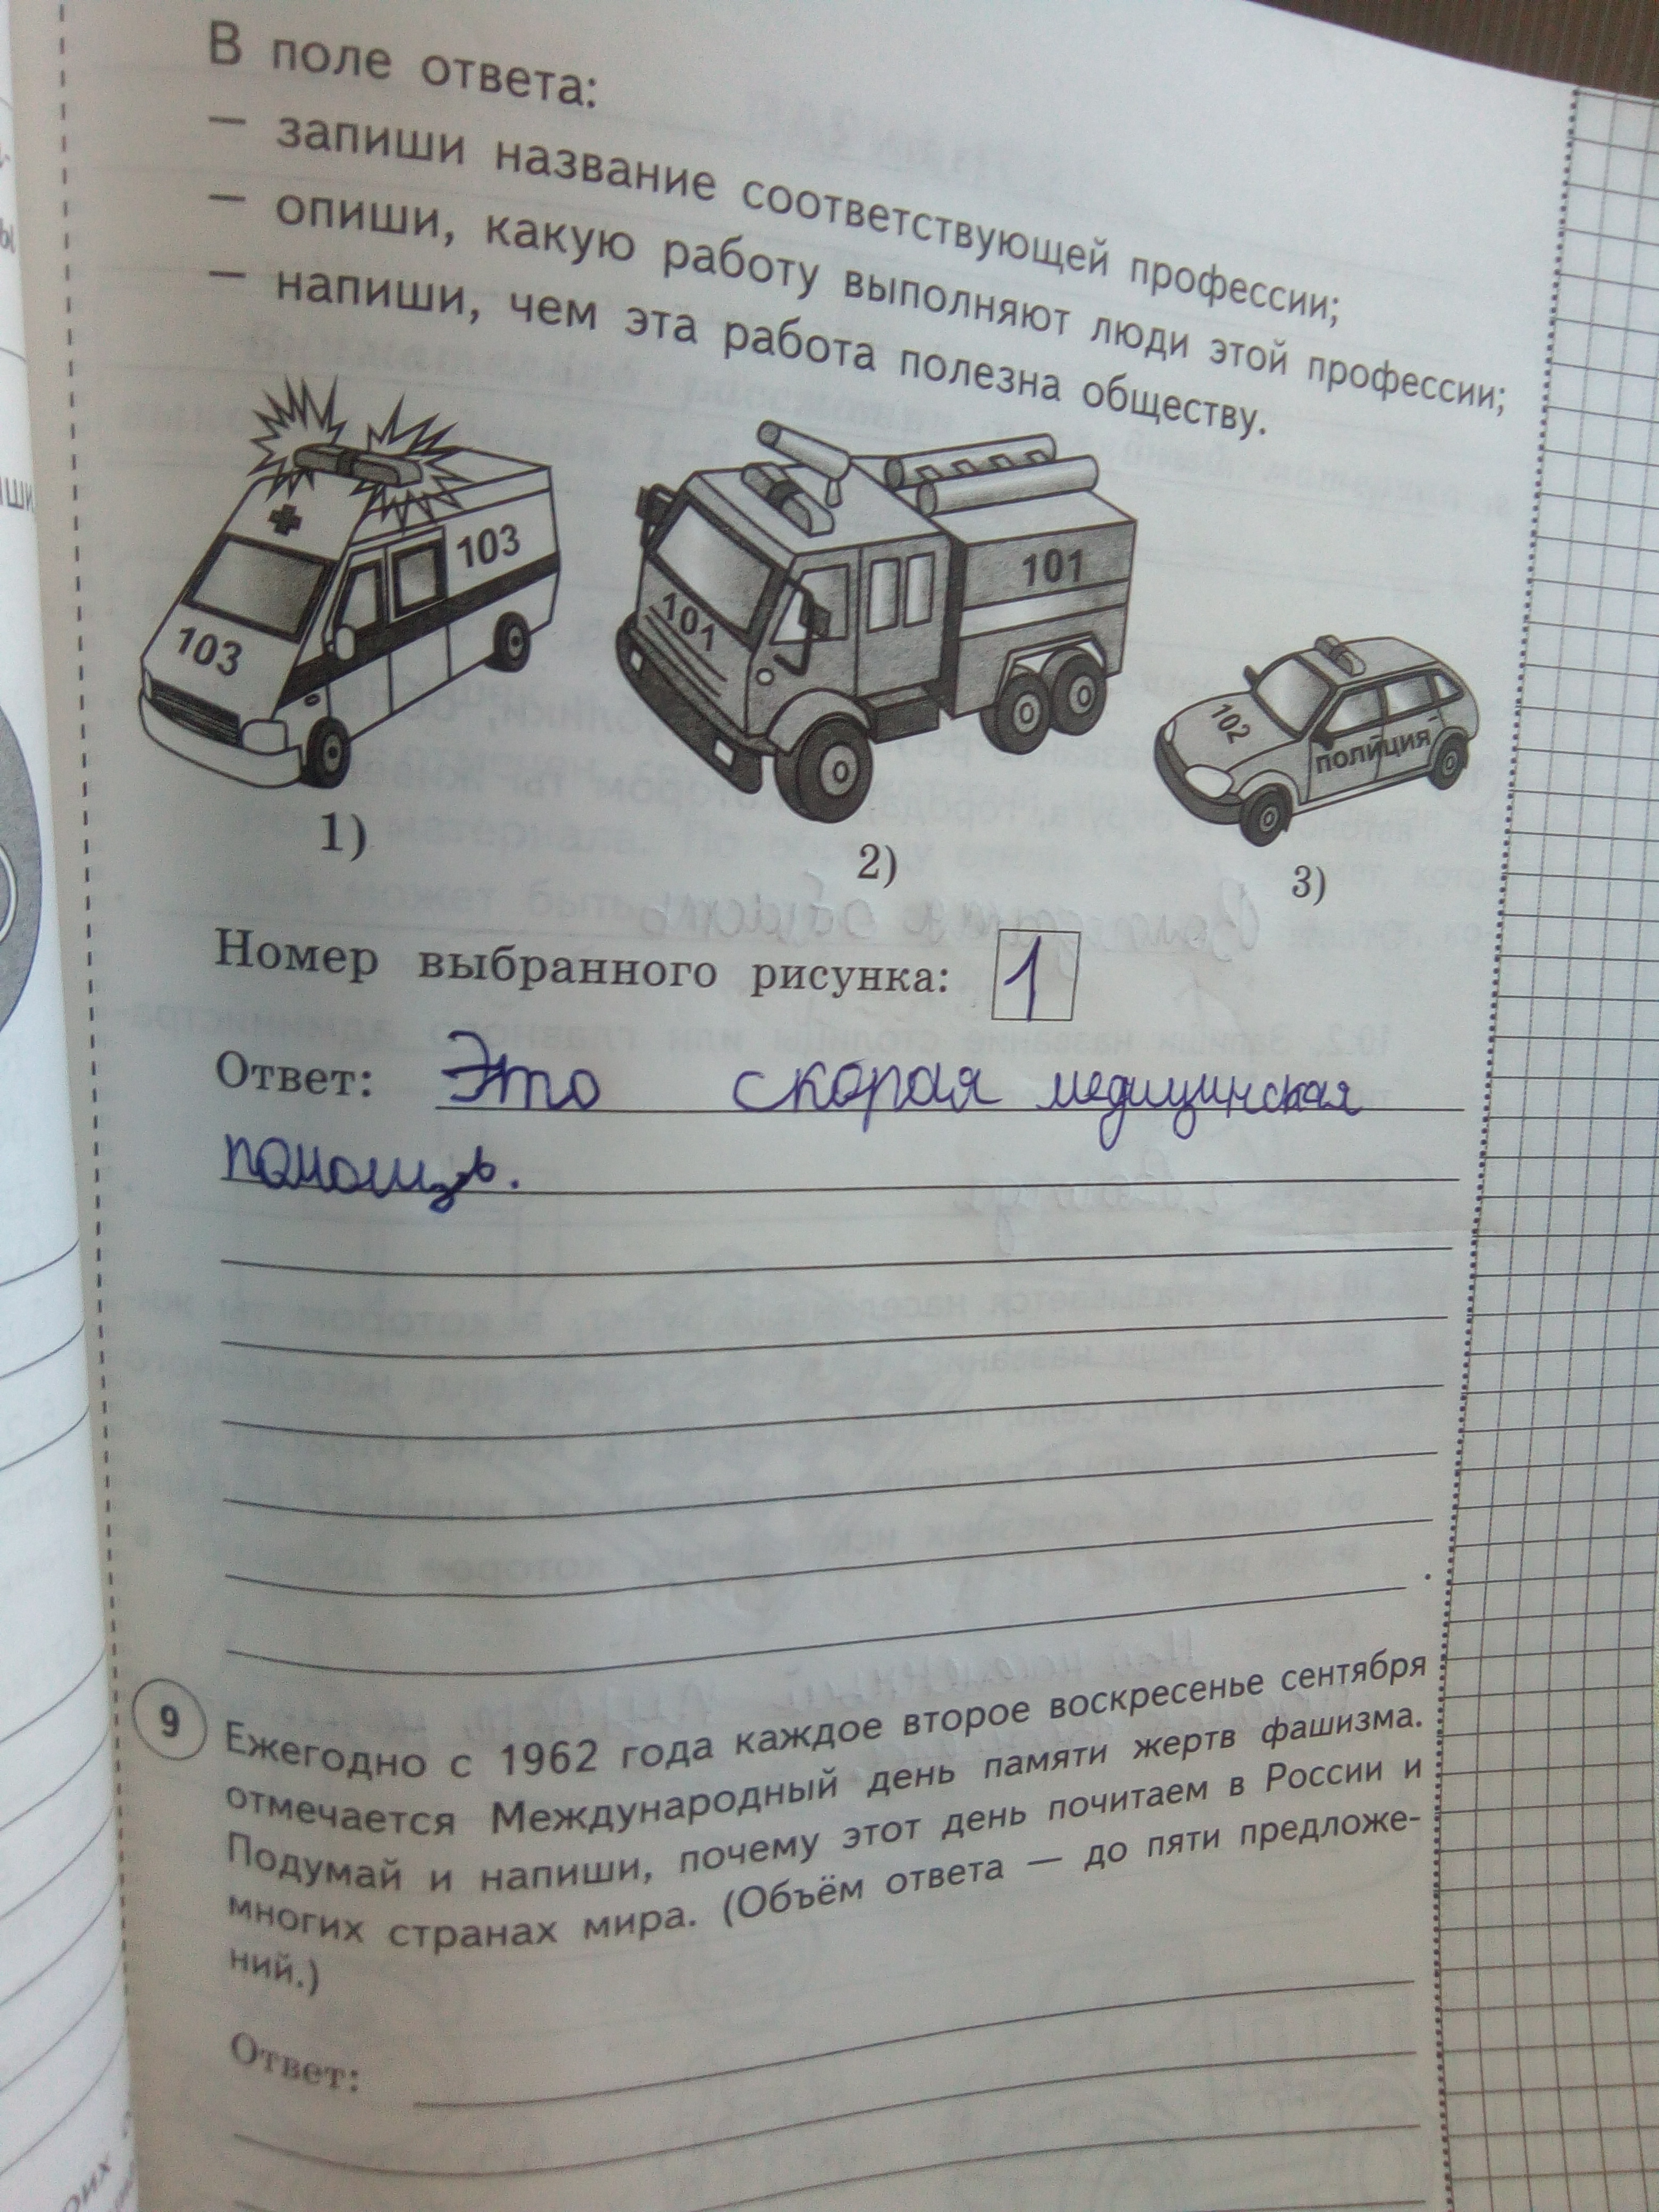 В поле ответа:
— запиши название соответствующей профессии;
— опиши, какую работу выполняют люди этой профессии;
— напиши, чем эта работа полезна обществу.
103
103
101
101
102
ПОЛИЦИЯ
1)
2)
3)
Номер выбранного рисунка: 1
Ответ: Это скорая медицинская
помощь.
9 Ежегодно с 1962 года каждое второе воскресенье сентября
отмечается Международный день памяти жертв фашизма.
Подумай и напиши, почему этот день почитаем в России и
многих странах мира. (Объём ответа — до пяти предложе-
ний.)
Ответ: